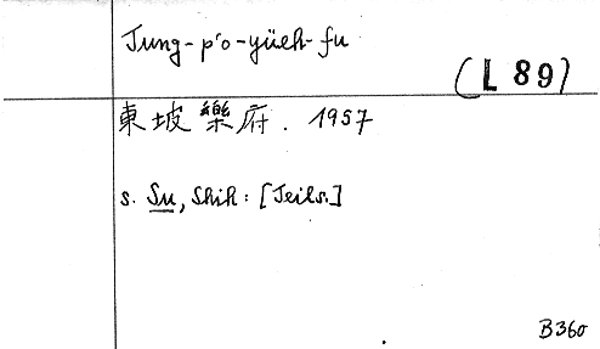 Tung-p'o-yüeh-fu
(L 89)
東坡樂府. 1957
s. Su, Shih: [Teils.]
B360